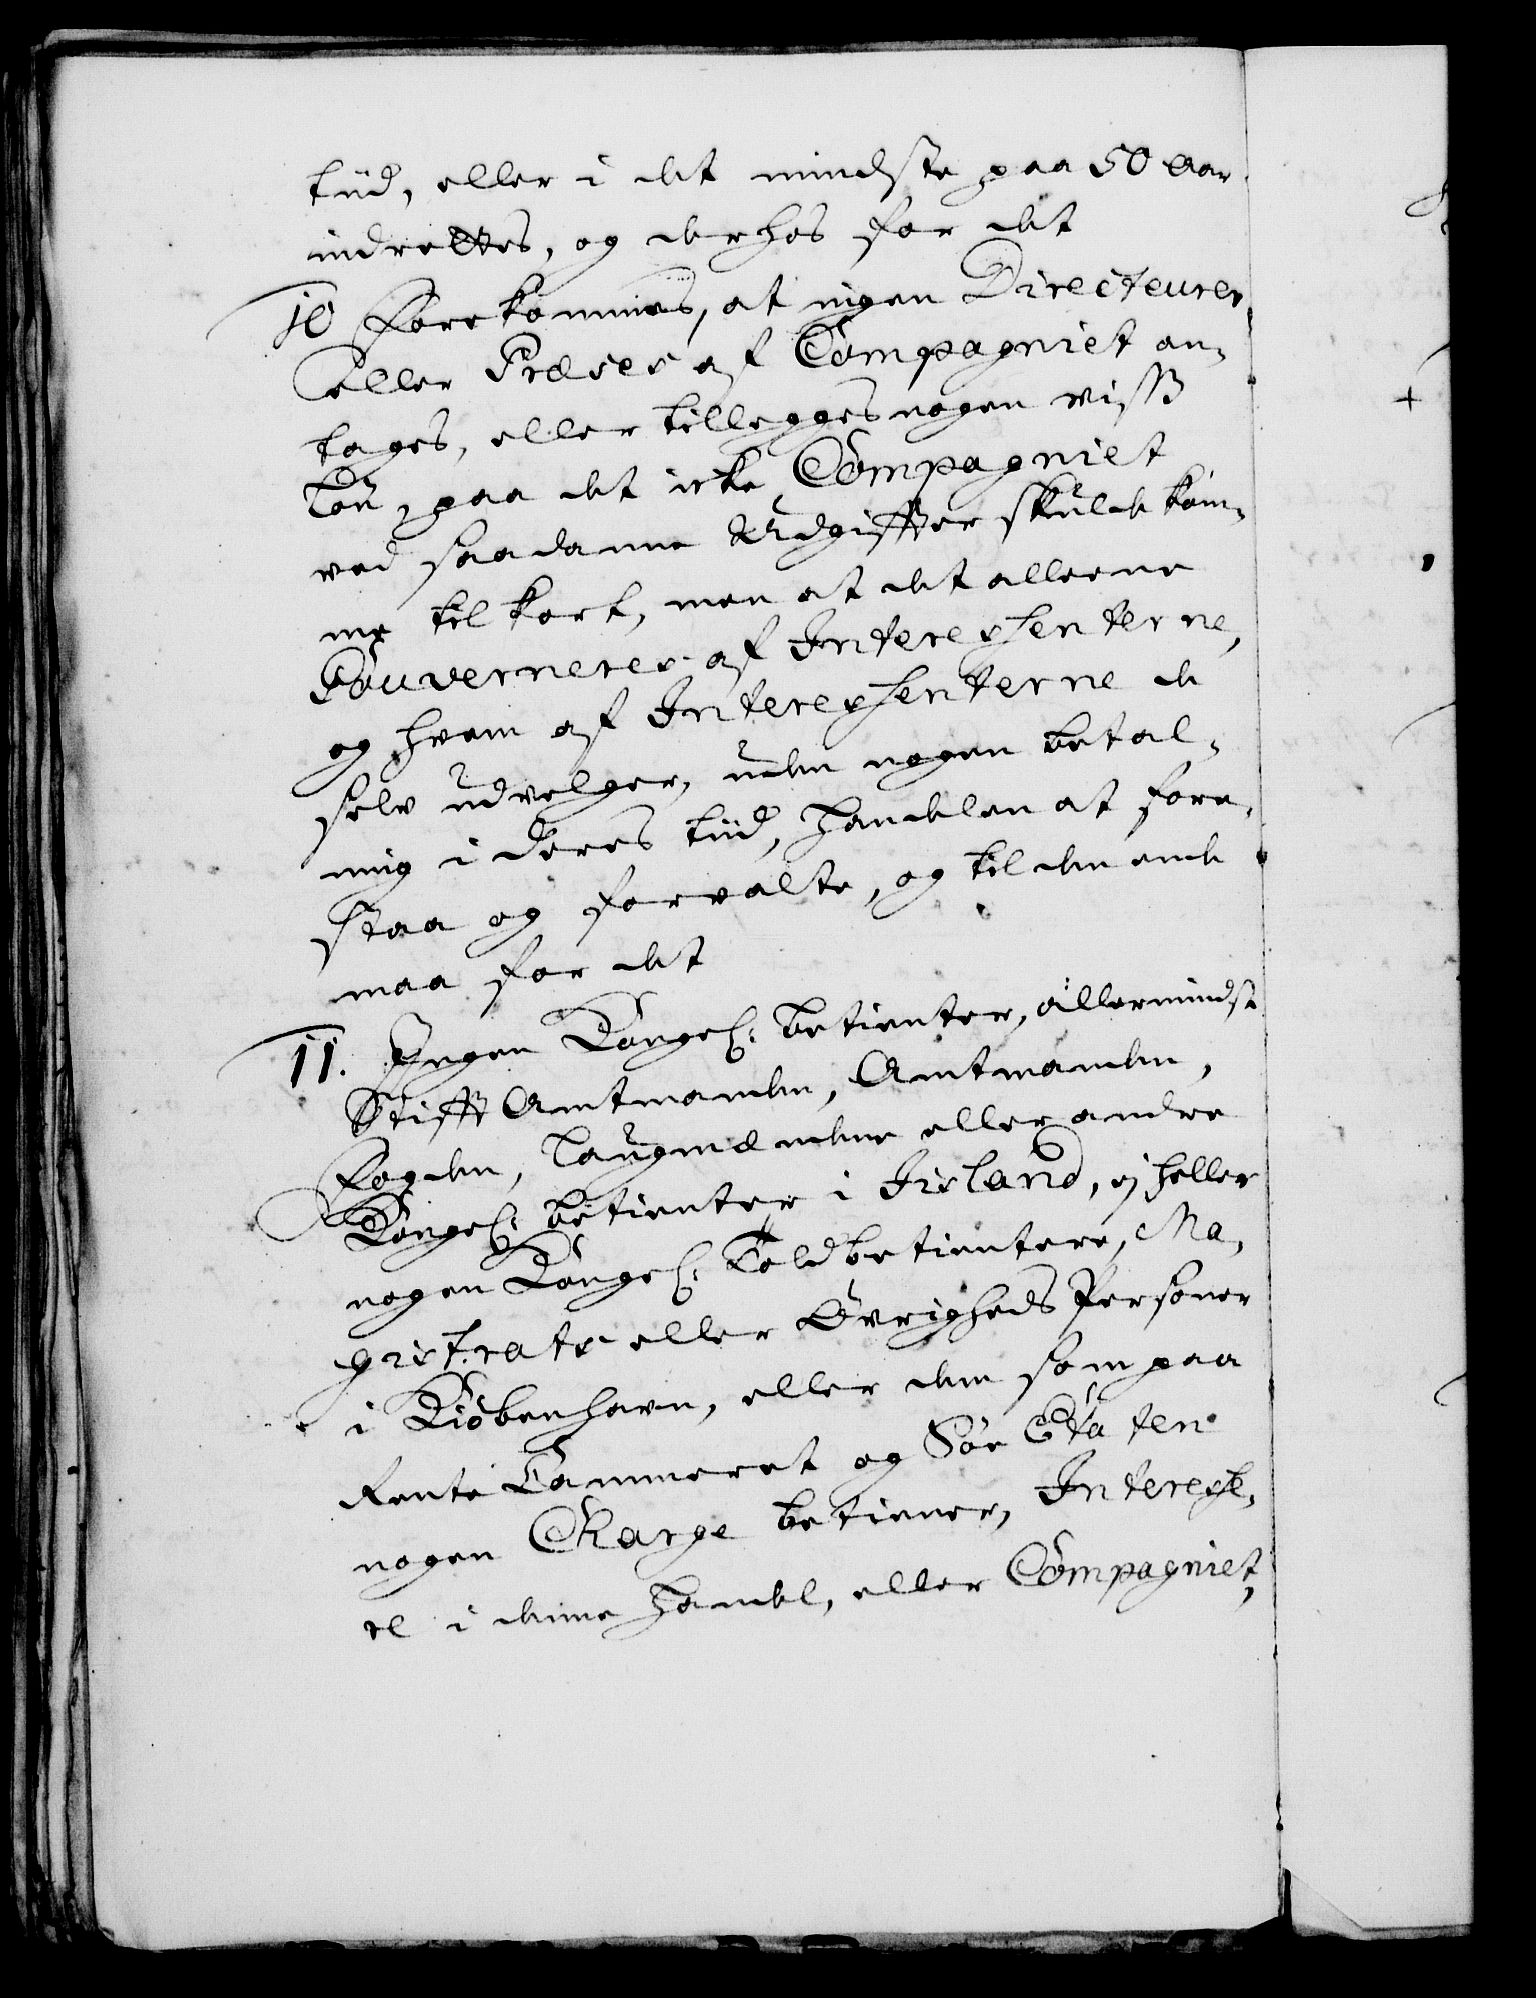 tiid, eller i det mindste paa 50 Aar
indrettes, og derhos for det
10 Forekommes, at ingen Directeurer
eller Præses af Compagniet an-
tages, eller tillegges nogen viss
Løn, paa det icke Compagniet
ved saadanne Udgiffter skulde kom-
me til kort, men at det alleene
Gouverneres af Interessenterne,
og hvem af Interessenterne de
selv udvelger, uden nogen betal-
ning i deres tiid, Handelen at fore-
staa og forvalte, og til den ende
maa for det
11. Ingen Kongel: betienter, allermindst
Stifft Amtmanden, Amtmanden,
Fogden, Laugmændene eller andre
Kongel: betienter i Iisland, ej heller
nogen Kongel: Toldbetientere, Ma-
gistrats eller Øvrigheds Personer
i Kiøbenhavn, eller dem som paa
Rente Cammeret og Søe Etaten
nogen Charge betiener, Interesse-
re i denne Handel, eller Compagniet,